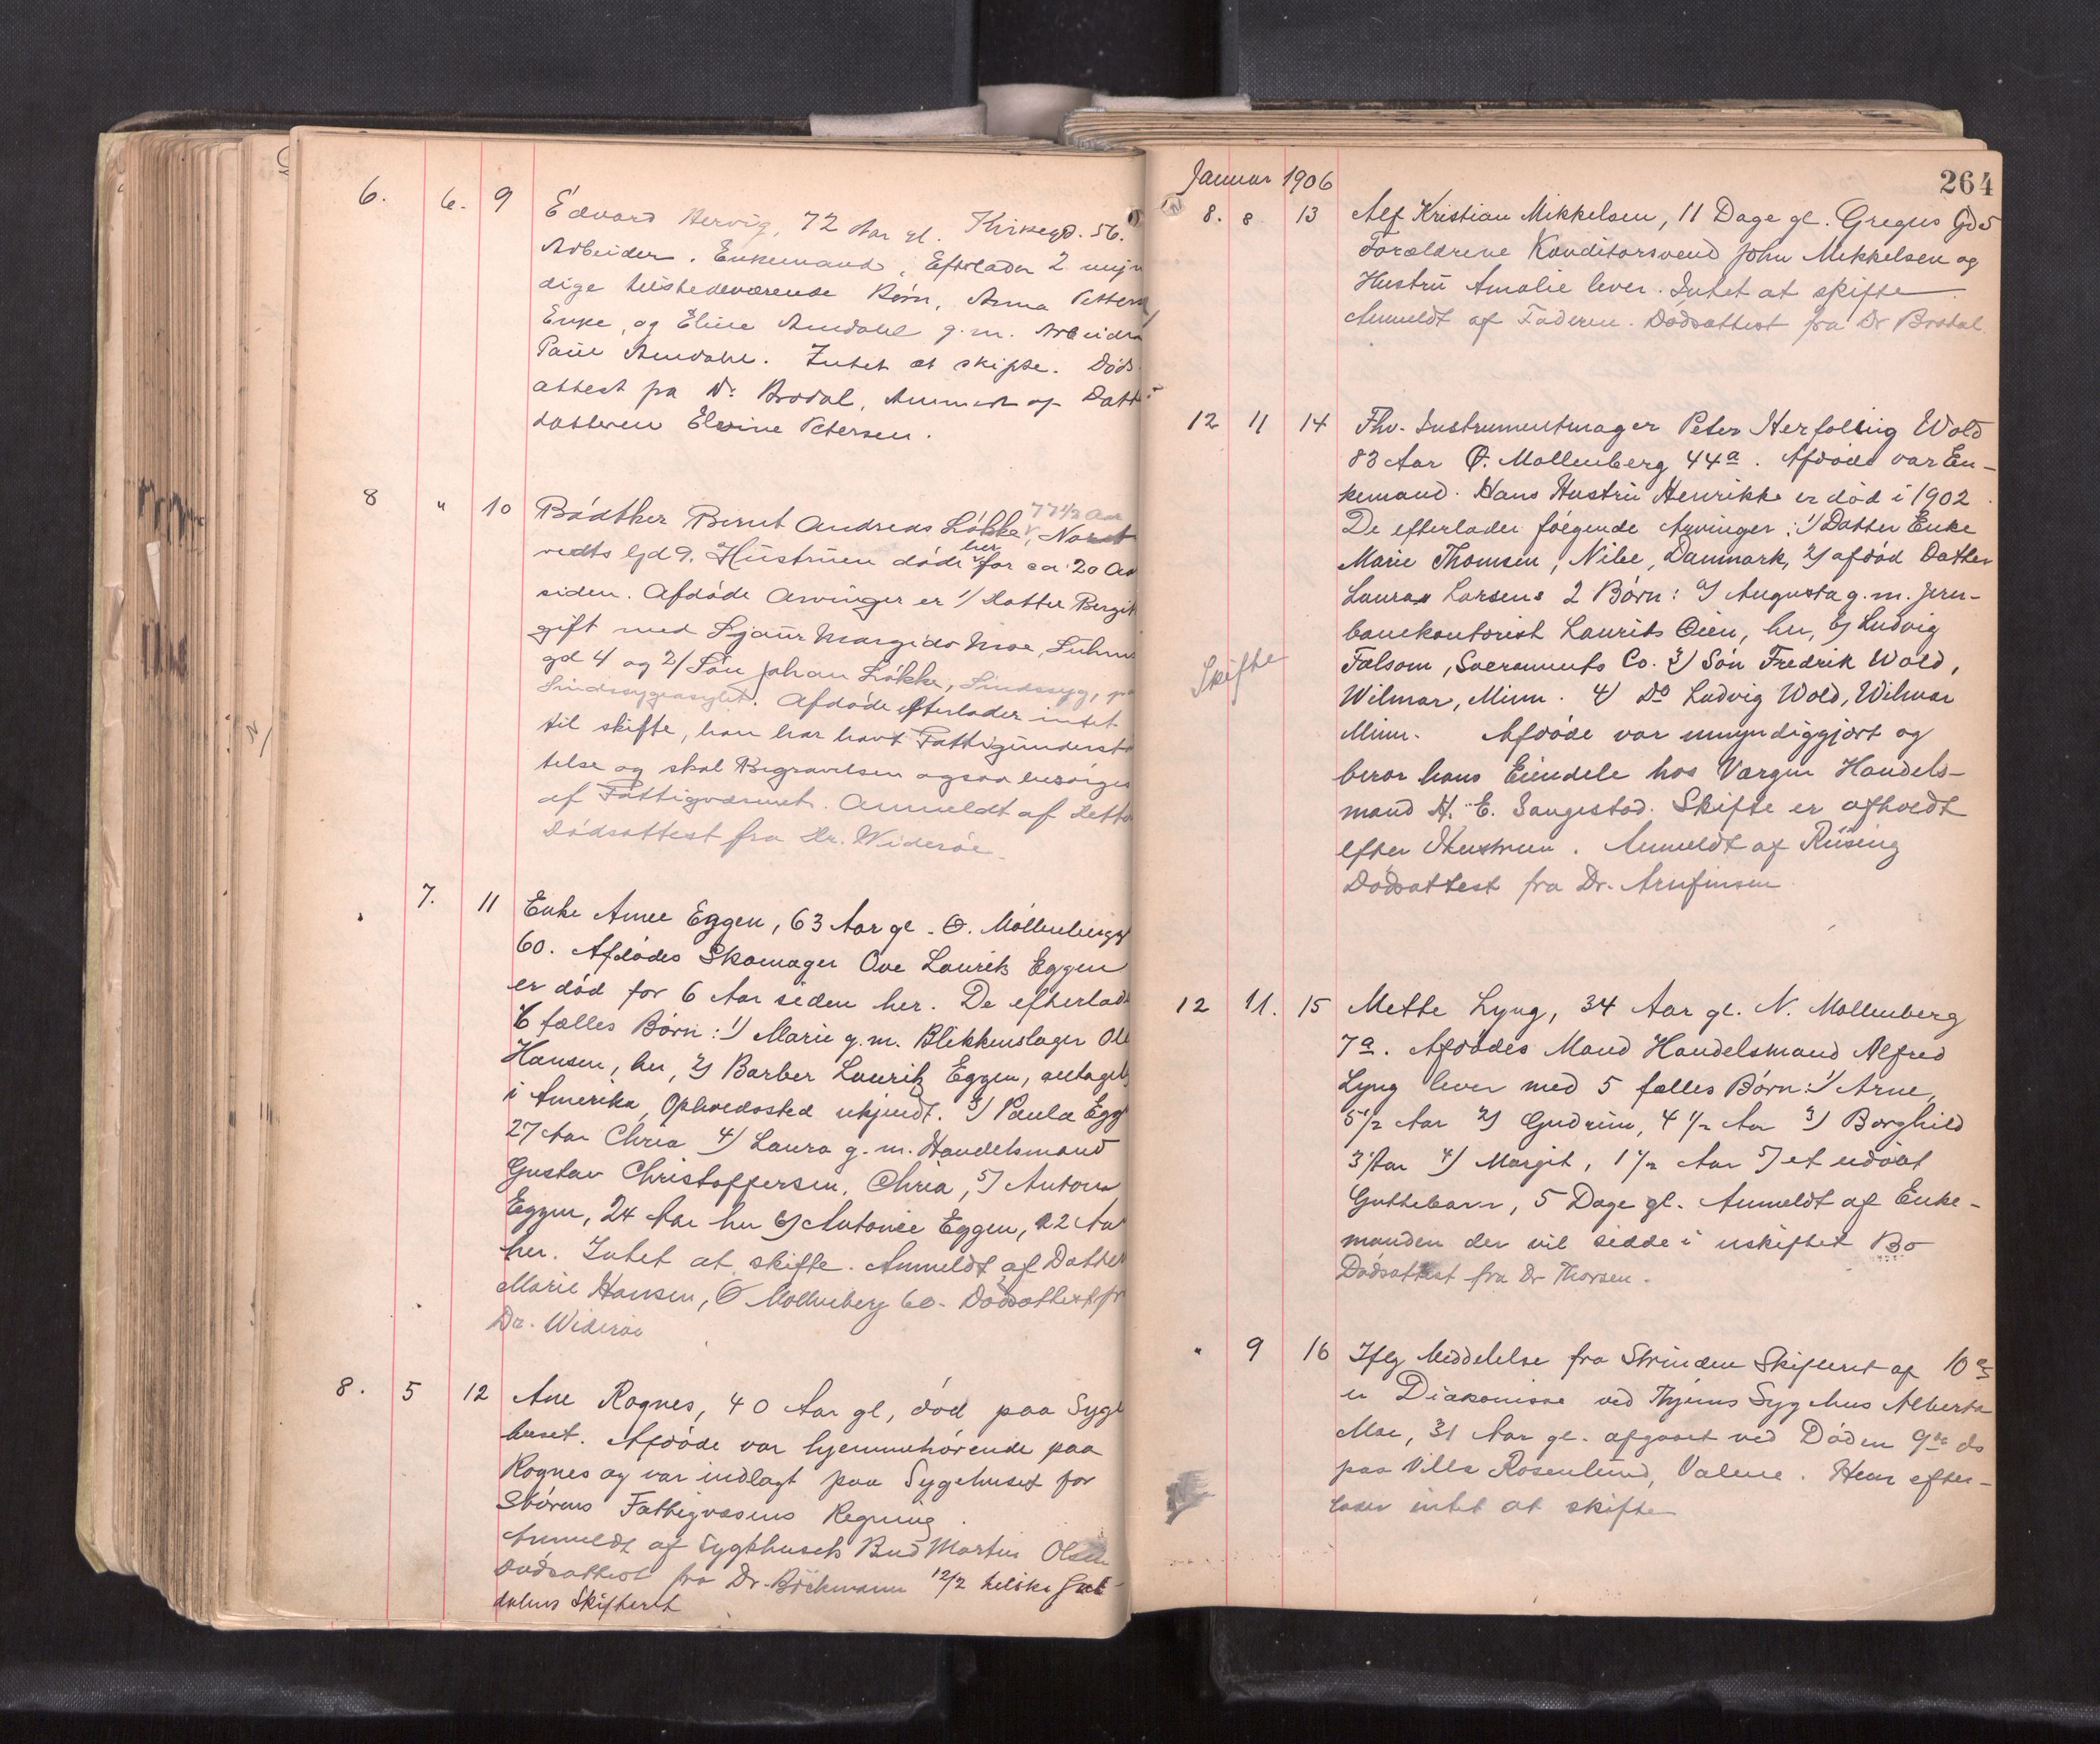 6. 6. 9 Edvard Hervig, 72 Aar gl. Kirkegd. 56.
Arbeider. Enkemand. Efterlader 2 myn
dige tilstedeværende Børn, Anna Petters
Enke, og Eline Amdahl g. m. Arbeider
Paul Amdahl. Intet at skifte. Døds
attest fra Dr. Brodal, Anmeldt af Datt
datteren Elvine Petersen.
8 " 10 Bødtker Bernt Andreas Løkke, 77 1/2 Aar
vedts gd 9. Hustruen døde her for ca. 20 Aar
siden. Afdøde Arvinger er 1/ Datter Bergit
gift med Sjauer Margido Moe, Suhms
gd 4 og 2/ Søn Johan Løkke, Sindssyg, paa
Sindssygeasylet. Afdøde efterlader intet
til skifte, han har havt Fattigunderstø
telse og skal Begravelsen ogsaa besørges
af Fattigvæsenet. Anmeldt af Datter
Dødsattest fra Dr. Widerøe.
7. 11 Enke Anne Eggen, 63 Aar gl. Ø. Møllenberg
60. Afdødes Skomager Ove Lauritz Eggen
er død for 6 Aar siden her. De efterlader
6 fælles Børn: 1) Marie g. m. Blikkenslager Ole
Hansen, her, 2) Barber Lauritz Eggen, antagel
i Amerika, Opholdssted ukjendt. 3) Paula Egg
27 Aar Chria 4) Laura g. m. Handelsmand
Gustav Christoffersen, Chria, 5) Anton
Eggen, 24 Aar her 6) Antonie Eggen, 22 Aar
her. Intet at skifte. Anmeldt af Datter
Marie Hansen, Ø Møllenberg 60. Dødsattest fr
Dr. Widerøe
8. 5 12 Ane Rognes, 40 Aar gl, død paa Syge
huset. Afdøde var hjemmehørende paa
Rognes og var indlagt paa Sygehuset for
Størens Fattigvæsens Regning.
Anmeldt af Sygehusets Bud Martin Olsen
Dødsattest fra Dr. Bøckmann 12/2 tilskr. Gul-
dalens Skifteret
Januar 1906
264
8. 8 13 Alf Kristian Mikkelsen, 11 Dage gl. Gregus Gd 5
Forældrene Konditorsvend John Mikkelsen og
Hustru Amalie lever. Intet at skifte
Anmeldt af Faderen. Dødsattest fra Dr Brodal.
12 11 14 Fhv. Instrumentmager Peter Herfolling Wold
83 Aar Ø. Møllenberg 44a. Afdøde var En-
kemand. Hans Hustru Henrikke er død i 1902.
De efterlader følgende Arvinger: 1) Datter Enke
Marie Thomsen, Nibe, Danmark, 2) afdød Datter
Laura Larsens 2 Børn: a) Augusta g. m. Jern-
banekontorist Laurits Øien, her, b) Ludvig
Folsom, Sacramento Co. 3) Søn Fredrik Wold,
Wilmar, Minn. 4) Do Ludvig Wold, Wilmar
Minn. Afdøde var umyndiggjort og
Skifte
beror hans Eiendele hos Værgen Handels-
mand H. E. Saugestad. Skifte er afholdt
efter Hustruen. Anmeldt af Rüsing
Dødsattest fra Dr. Arnfinsen
12 11. 15 Mette Lyng, 34 Aar gl. N. Møllenberg
7a. Afdødes Mand Handelsmand Alfred
Lyng lever med 5 fælles Børn: 1) Arne,
5 1/2 Aar 2) Gudrun, 4 1/2 Aar 3) Borghild
3 Aar 4) Margit, 1 1/2 Aar 5) et udøbt
Guttebarn, 5 Dage gl. Anmeldt af Enke-
manden der vil sidde i uskiftet Bo
Dødsattest fra Dr Thorsen.
" 9 16 Iflg Meddelelse fra Strinden Skifteret af 10 ds
er Diakonisse ved Thjems Sygehus Alberta
Moe, 31 Aar gl. afgaaet ved Døden 9de ds
paa Villa Rosenlund, Valene. Hun efter-
lader intet at skifte